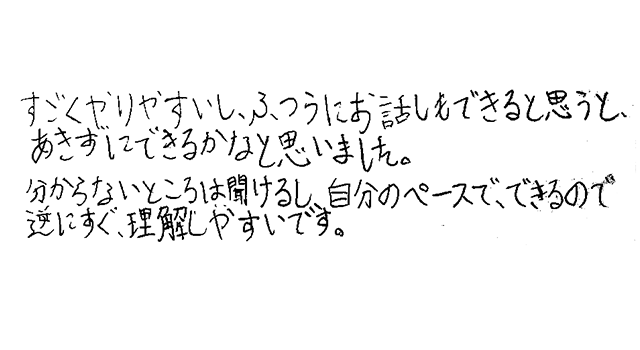 すごくやりやすいし、ふつうにお話しもできると思うと、
あきずにできるかなと思いました。
分からないところは聞けるし、自分のペースで、できるので
逆にすぐ、理解しやすいです。